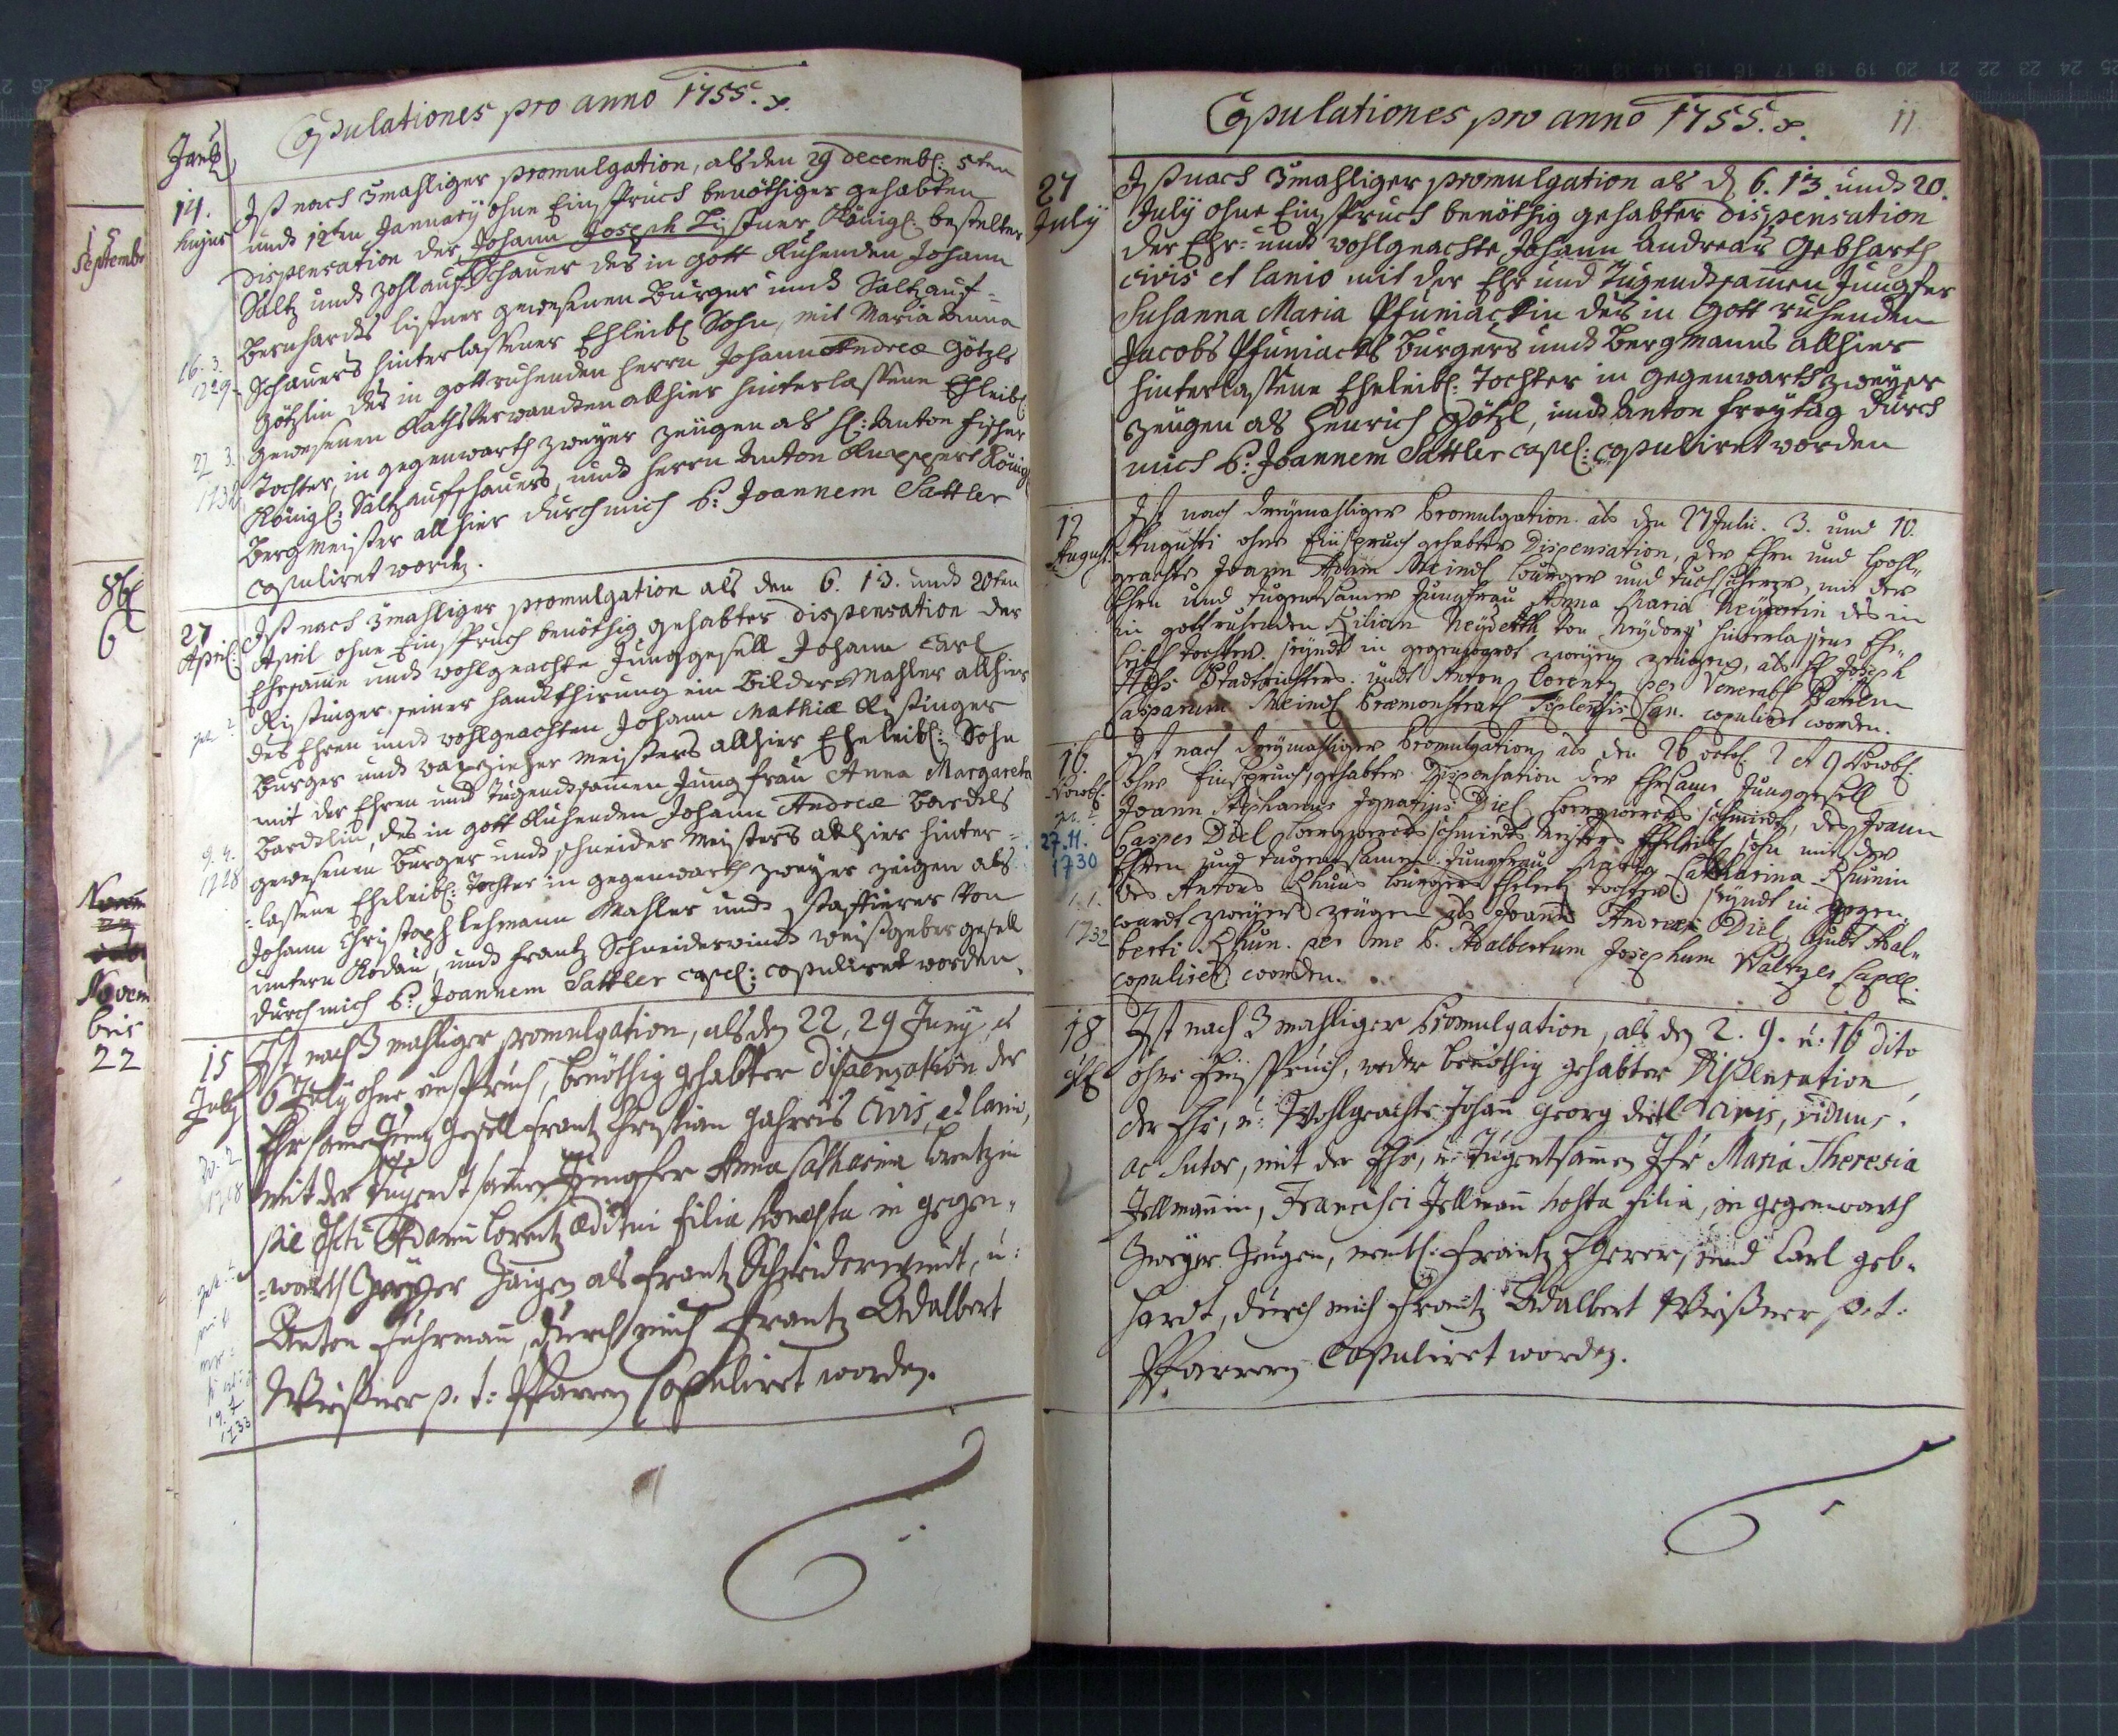 Copulationes pro anno 1755. x.
14.
hujus
Ist nach 3mahliger promulgation, als den 29 decemb: 5ten
und 12ten January ohne Einspruch benöthiger gehabten
dispensation der Johann Joseph Listner, Königl: bestelter
Saltz und Zohl aufschauer des in Gott Ruhenden Johann
Bernhards Listner gewesenen Burger und Saltzauf=
schauers hinterlassener Ehleibl Sohn, mit Maria Anna
Götzlin des in gottruhenden Herrn Johann Andreæ Götzls
gewesenen Rathsverwandten allhier hinterlassene Ehleibl
Tochter, in gegenwarth zweyer zeügen als H: Anton Fischer
Königl: Saltzaufschauers, und Herrn Anton Ruppert König
Bergmeister allhier durch mich P: Joannem Sattler
copuliret worden.
16. 3.
1729
22 3.
27
April:
Ist nach 3mahliger promulgation als den 6. 13. und 20ten
April ohne Einspruch benöthig gehabter dispensation der
Ehrsame und wohlgeachte Junggesell Johann Carl
Ristinger seiner handthirung ein Bilder Mahler allhier
des Ehren und wohlgeachten Johann Mathiæ Ristinger
Burger und meisters allhier Eheleibl: Sohn
mit der Ehren und tugendsamen Jungfrau Anna Margareta
Bardtlin, des in gott Ruhenden Johann Andreæ Bardtls
gewesenen Burger und schneider Meisters allhier hinter=
=lassene Eheleibl: Tochter in gegenwarth zweyer zeügen als
Johann Christoph Lehmann Mahler und staffierer von
untern Rodau, und Frantz Schneiderwind weißgerber gesell
durch mich P: Joannem Sattler capel: copuliret worden.
9. 4.
1728
15
July
Ist nach 3 mahliger promulgation, als den 22, 29 Juny, et
6 July ohne einspruch, benöthig gehabter dispensation der
Ehrsame Jung gesell Frantz Christian Gahreis civis, et lanio,
mit der tugendtsamen Jungfer Anna Catharina Lorentzin
pie dfcti Adami Lorentz æditui filia honesta in gegen=
=warth zweyer Zeigen als Frantz Schneiderwindt, u:
Anton Fuhrmann, durch mich Frantz Adalbert
Weißner p. t: Pfarrer Copuliret worden.
19. 4
1733
15
Septemb
8bl
6
Novem
bris
22
Copulationes pro anno 1755. x.
11
27
July
Ist nach 3mahliger promulgation als d 6. 13. und 20.
July ohne Einspruch benöthig gehabter dispensation
der Ehr= und wohlgeachte Johann Andreas Gebharth
civis et lanio mit der Ehr und Tugendsamen Jungfer
Susanna Maria Pfuniackin des in Gott ruhenden
Jacobs Pfuniacks Burgers und Bergmanns allhier
hinterlassene Eheleibl: Tochter in gegenwarth zweyer
zeügen als Henrich Götzl, und Anton Freytag durch
mich P: Joannem Sattler capel: copuliret worden
12
August
Ist nach dreymahliger Promulgation als den 27 Julii. 3. und 10.
Augusti ohne Einspruch gehabter Dispensation, der Ehren und Wohl=
geachte Joann Adam Meindl burger und tuchscherer, mit der
Ehren und tugentsamen Jungfrau Anna Maria Neyderthin des in
in gott ruhenden Kilian Neyderth von Neydorf hinterlassene Ehe=
leibl tochter. seyndt in gegenwardt zweyer zeügen, als H Joseph
Stadtrichters. undt Anton Lorentz per Venerabl Patrem
Casparum Meindl Præmonstrat: Teplensis Can. copulirt worden.
16.
Novbl:
Ist nach dreymahliger Promulgation als den 26 octob: 2 et 9 Novbl:
ohne Einspruch, gehabter Dispensation der Ehrsame Junggesell
Joann Stephanus Ignatius Diel bergwercks schmidt, des Joann
Casper Diel bergwercks schmidts meisters Eheleibl sohn mit der
Ehren und tugentsamen Jungfrau Maria Catharina Khunin
des Antons Khuns burgers Eheleibl tochter seyndt in gegen=
wardt zweyer zeügen als Joann Andreæ Diel, undt Adal=
berti Khun. per me P. Adalbertum Josephum Waltzer Capell.
copuliret worden.
27. 11.
1730
1. 1.
1732
18
Ist nach 3 mahliger Promulgation, als den 2. 9. u: 16 dito
ohne Einspruch, weder benöthig gehabter Dispensation
der Ehr, u: Wohlgeachte Johann Georg Dietl civis, viduus
ac sutor, mit der Ehr, u: tugentsamen Jfr Maria Theresia
Illmannin, Francisci Illmann hosta filia, in gegenwarth
Zweyer Zeugen, nembl: Frantz und Carl geb=
hardt, durch mich Frantz Adalbert Weißner p. t:
Pfarrern Copuliret worden.